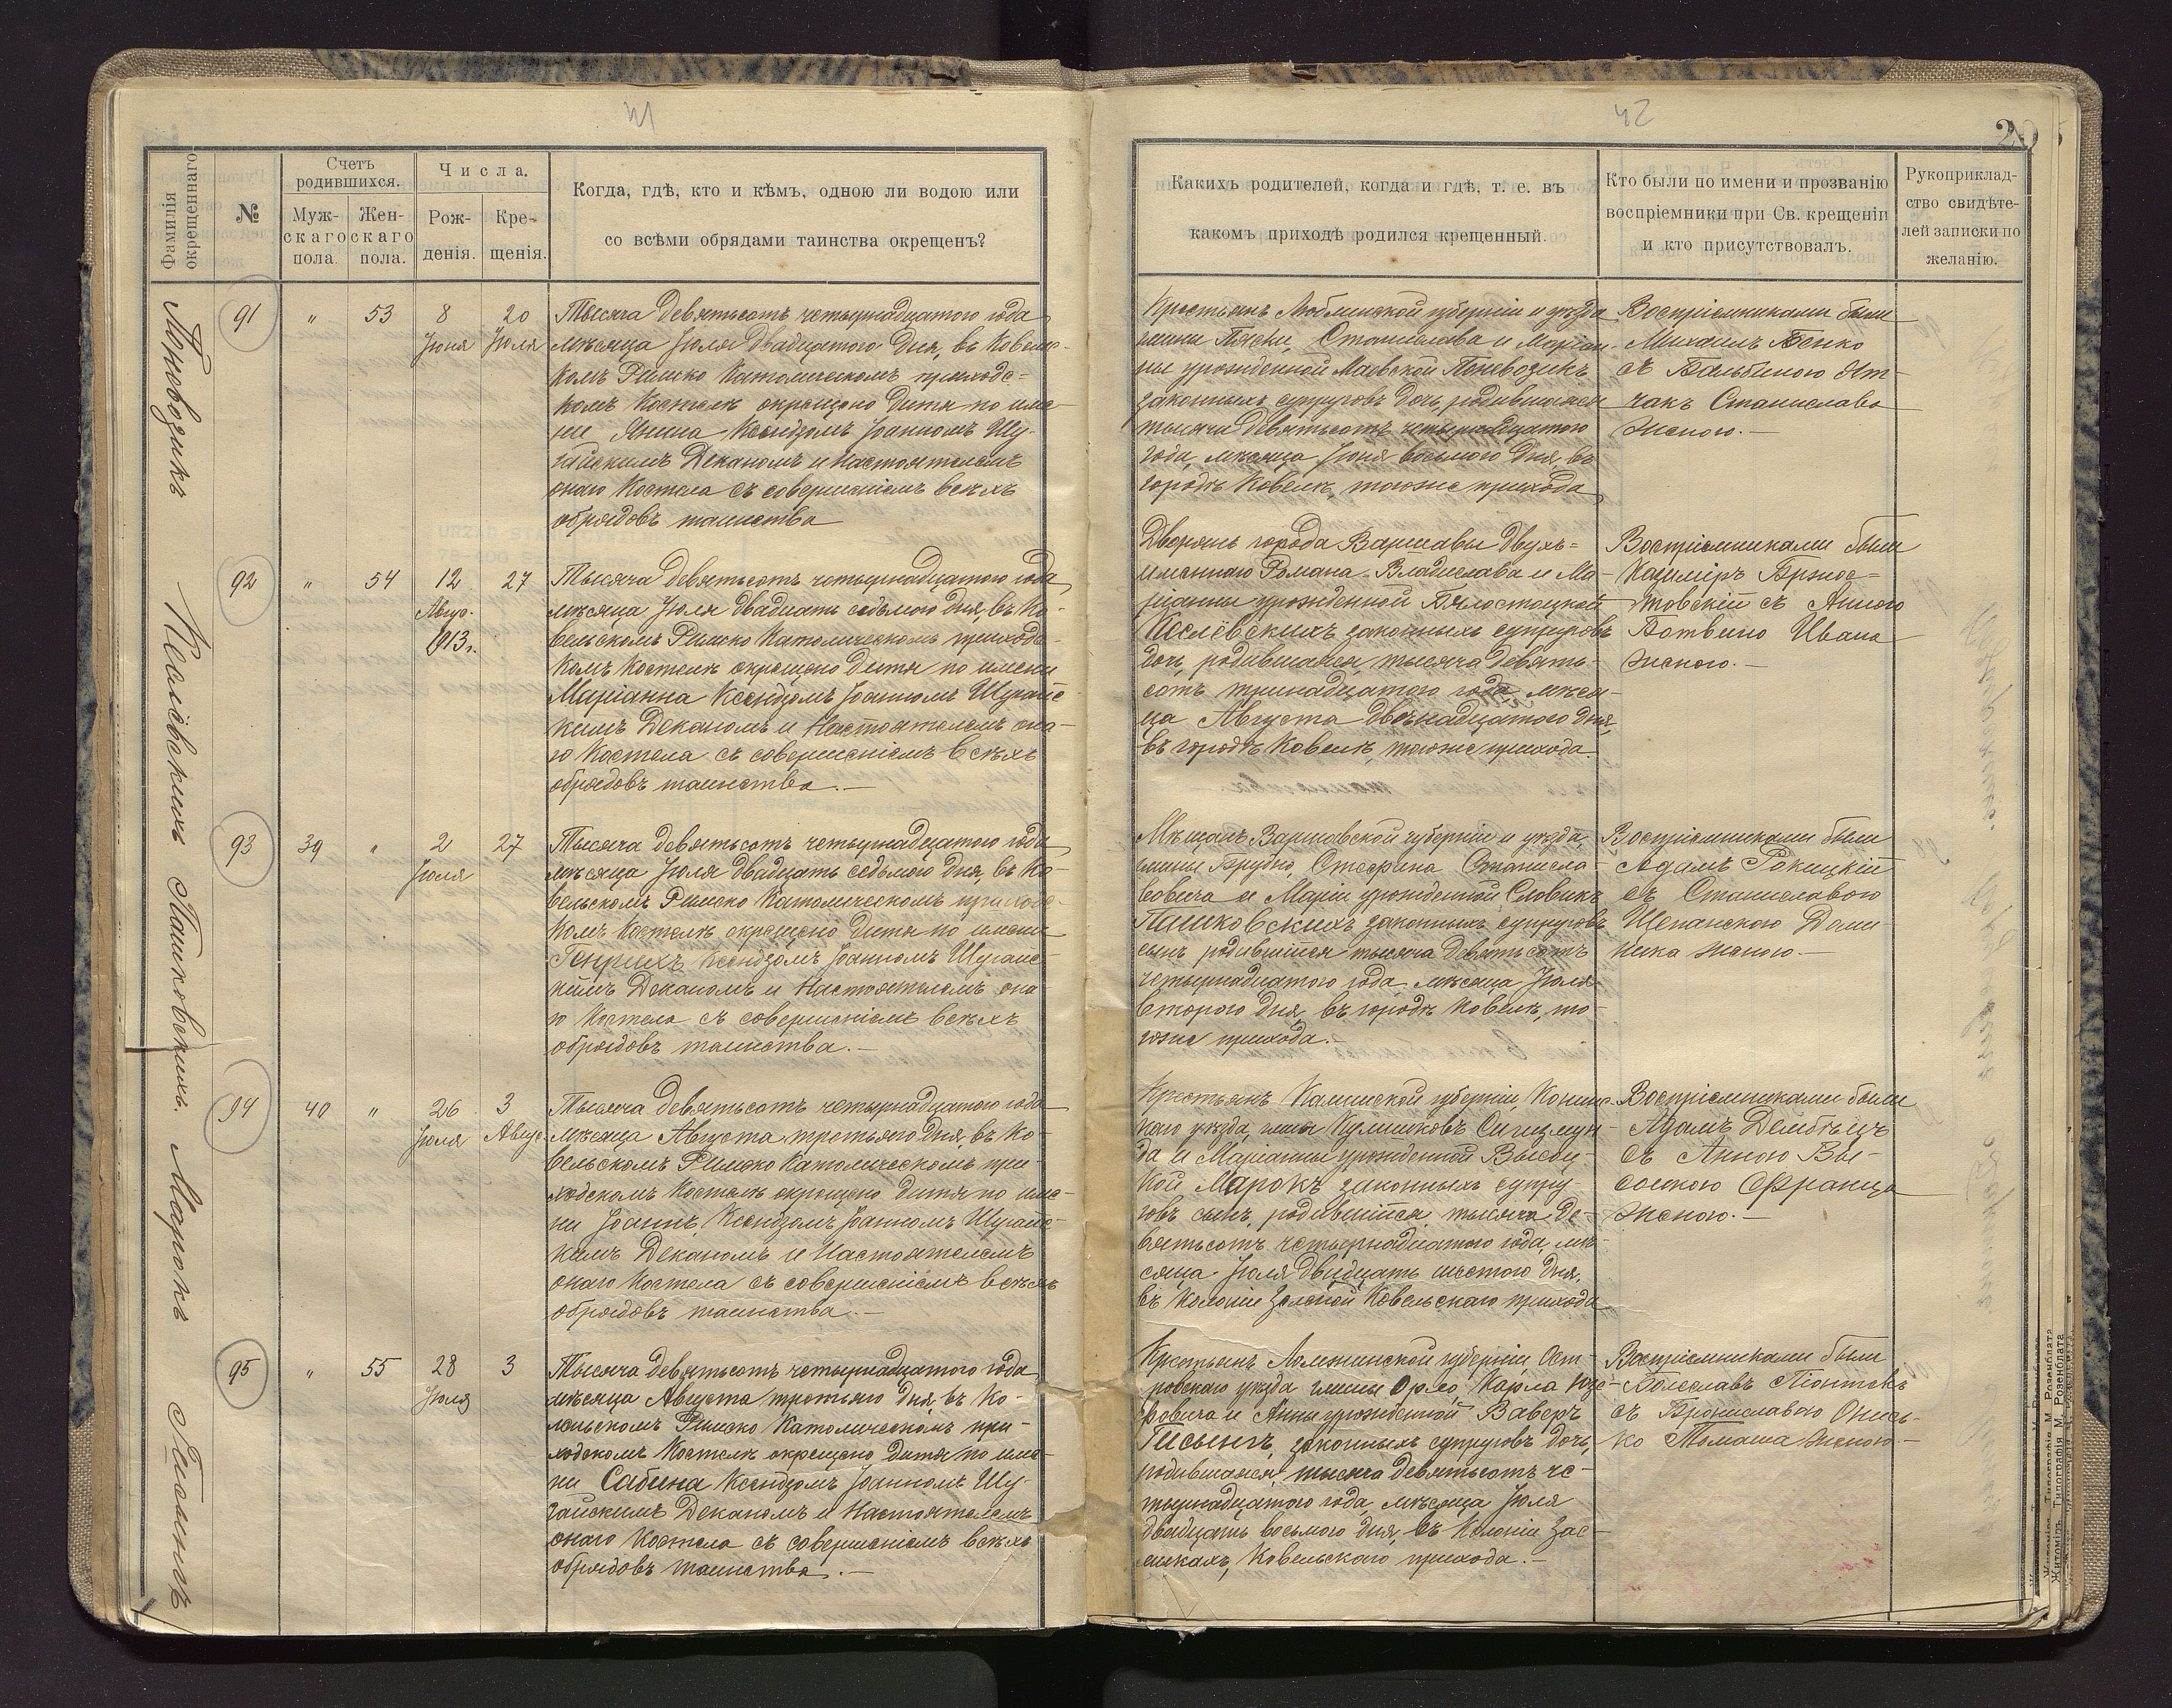 41
42
20
Фамилія окрещеннаго
№
Счетъ родившихся.
Мужскаго пола.
Женскаго пола.
Числа.
Рожденія.
Крещенія.
Когда, гдѣ, кто и кѣмъ, одною ли водою или
со всѣми обрядами таинства окрещенъ?
Какихъ родителей, когда и гдѣ, т. е. въ
какомъ приходѣ родился крещенный.
Кто были по имени и прозванію
воспріемники при Св. крещеніи
и кто присутствовалъ.
Рукоприклад-
ство свидѣте-
лей записки по
желанію.
Поневозикъ
91
" 53 8 20
Іюня Іюля
Тысяча девятьсотъ четырнадцатого года
мѣсяца Іюля двадцатого дня, въ Ковельс-
комъ Римско Католическомъ приходс=
комъ Костелѣ окрещено дитя по име-
ни Янина Ксендзомъ Іоанномъ Шу-
гайскимъ Деканомъ и Настоятелемъ
онаго Костела съ совершеніемъ всѣхъ
обрядовъ таинства
Крестьянъ Люблинской губерніи и уѣзда
гмины Пяски, Станислава и Маріан-
ны урожденной Маевской Поневозикъ
законныхъ супруговъ дочь, родившаяся
тысяча девятьсотъ четырнадцатого
года, мѣсяца Іюня восьмого дня, въ
городѣ Ковелѣ, тогоже прихода
Воспріемниками были
Михаилъ Бенко
съ Бальбиною
чакъ Станислава
женою.—
Кислёвскихъ
92
" 54 12 27
Авгус.
913г.
Тысяча девятьсотъ четырнадцатого года
мѣсяца Іюля двадцать седьмого дня, въ Ко-
вельскомъ Римско Католическомъ приходс-
комъ Костелѣ окрещено дитя по имени
Маріанна Ксендзомъ Іоанномъ Шугайс
кимъ Деканомъ и Настоятелемъ она-
го Костела съ совершеніемъ всѣхъ
обрядовъ таинства.—
Дворянъ города Варшавы двухъ=
именнаго Романа-Владислава и Ма-
ріанны урожденной Бялостоцкой
Кислёвскихъ законныхъ супруговъ
дочь, родившаяся, тысяча девять-
сотъ тринадцатого года мѣся-
ца Августа двѣнадцатого дня,
въ городѣ Ковелѣ, тогоже прихода.
Воспріемниками были
Казиміръ Бржос=
товскій съ Анною
Ботвино Ивана
женою.—
Пашковскихъ.
93
39 " 2 27
Іюля
Тысяча девятьсотъ четырнадцатого года
мѣсяца Іюля двадцать седьмого дня, въ Ко-
вельскомъ Римско Католическомъ приходс-
комъ Костелѣ окрещено дитя по имени
Генрихъ Ксендзомъ Іоанномъ Шугайс-
кимъ Деканомъ и Настоятелемъ она-
го Костела съ совершеніемъ всѣхъ
обрядовъ таинства.—
Мѣщанъ Варшавской губерніи и уѣзда,
гмины Брудно, Стефана Станисла-
вовича и Маріи урожденной Словикъ
Пашковскихъ законныхъ супруговъ
сынъ родившійся тысяча девятьсотъ
четырнадцатого года мѣсяца Іюля
второго дня, въ городѣ Ковелѣ, то-
гоже прихода.—
Воспріемниками были
Адамъ Рокицкій
съ Станиславою
Щепанскою Доми
ника женою.—
Марокъ
94
40 " 26 3
Іюля Авгус.
Тысяча девятьсотъ четырнадцатого года
мѣсяца Августа третьяго дня, въ Ко-
вельскомъ Римско Католическомъ при-
ходскомъ Костелѣ окрещено дитя по име-
ни Іоаннъ, Ксендзомъ Іоанномъ Шугайс-
кимъ Деканомъ и Настоятелемъ
онаго Костела съ совершеніемъ всѣхъ
обрядовъ таинства.—
Крестьянъ Калишской губерніи, Конинс-
каго уѣзда, гмины Кулишковъ Сигизмун-
да и Маріанны урожденной Высоц-
кой Марокъ законныхъ супру-
говъ сынъ, родившійся тысяча де-
вятьсотъ четырнадцатого года, мѣ-
сяца Іюля двадцать шестого дня,
въ Колоніи Зеленой Ковельскаго прихода
Воспріемниками были
Адамъ Дембецъ
съ Анною Вы-
соцкою Франца
женою.—
Гисынгъ
95
" 55 28 3
Іюля
Тысяча девятьсотъ четырнадцатого года
мѣсяца Августа третьяго дня, въ Ко-
вельскомъ Римско Католическомъ при-
ходскомъ Костелѣ окрещено дитя по име-
ни Сабина Ксендзомъ Іоанномъ Шу-
гайскимъ Деканомъ и Настоятелемъ
онаго Костела съ совершеніемъ всѣхъ
обрядовъ таинства.—
Крестьянъ Ломжинской губерніи Ост-
ровскаго уѣзда гмины Орло, Карла
и Анны урожденнойВаверъ
Гисынгъ, законныхъ супруговъ дочь,
родившаяся тысяча девятьсотъ че-
тырнадцатого года, мѣсяца Іюля
двадцать восьмого дня, въ Колоніи Зас-
Ковельскаго прихода.—
Воспріемниками были
Болеславъ Піонтекъ
съ Брониславою Онись-
ко Томаша женою.—
Житоміръ. Типографія М. Розенблата